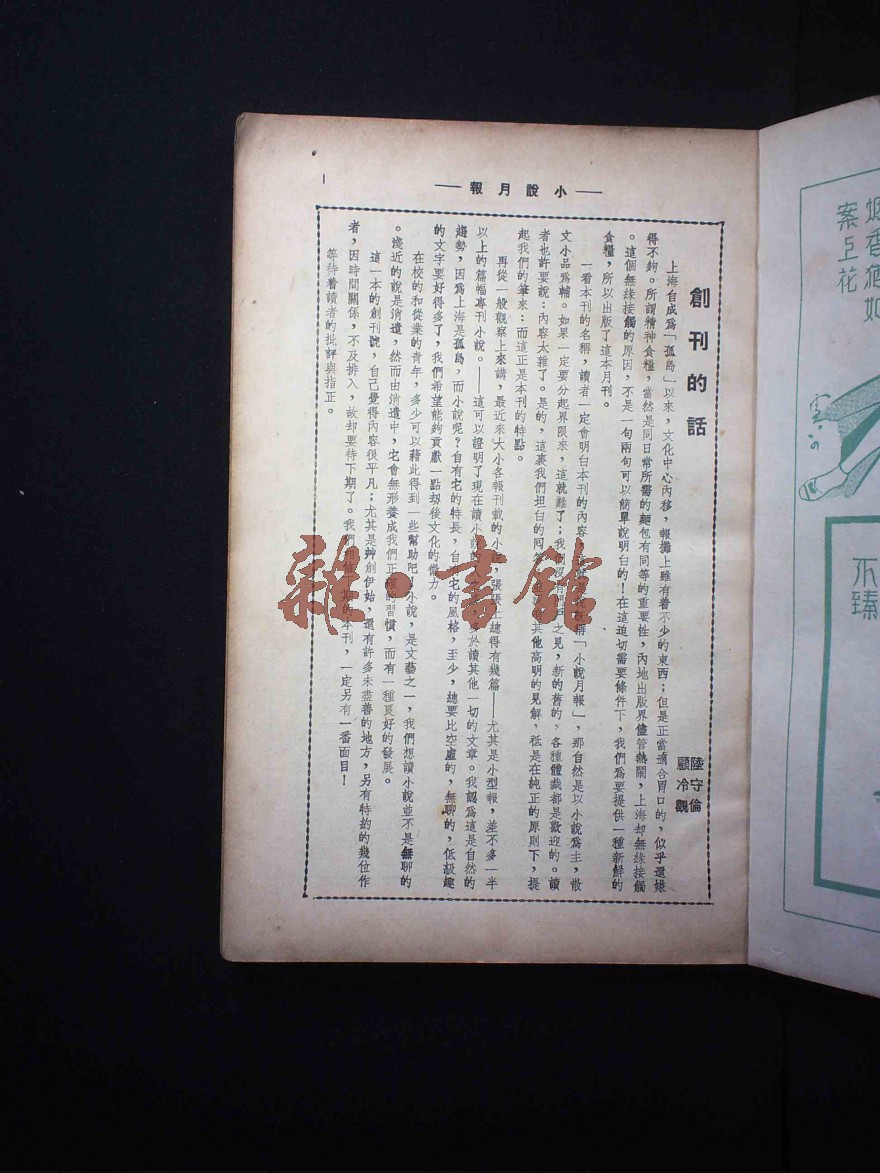 小說月報
1
創刊的話
陸守倫
顧冷觀
上海自成爲「孤島」以來，文化中心內移，報攤上雖有着不少的東西；但是正當適合胃口的，似乎還嫌
得不夠。所謂精神食糧，當然是同日常所需的麵包有同等的重要性，內地出版界儘管熱鬧，上海却無緣接觸
。這個無緣接觸的原因，不是一句兩句可以簡單說明白的！在這迫切需要條件下，我們爲要提供一種新鮮的
食糧，所以出版了這本月刊。
一看本刊的名稱，讀者一定會明白本刊的內容，稱「小說月報」，那自然是以小說爲主，散
文小品爲輔。如果一定要分起界限來，這就難了；我們沒有門戶之見，新的舊的，各種體裁都是歡迎的。讀
者也許要說：內容太雜了。是的，這裏我們坦白的回答，其他高明的見解，祇是在純正的原則下，提
起我們的筆來：而這正是本刊的特點。
再從一般觀察上來講，最近來大小各報刊載的小說，張張上總得有幾篇——尤其是小型報，差不多一半
以上的篇幅專刊小說。——這可以證明了現在讀小說的於讀其他一切的文章。我認爲這是自然的
趨勢，因爲上海是孤島，而小說呢？自有它的特長，自有它的風格，至少，總要比空虛的，無聊的，低級趣
的文字要好得多了，我們希望能夠貢獻一點刼後文化的微力。
在校的和從業的青年，多少可以藉此得到一些幫助吧！小說，是文藝之一，我們想讀小說並不是無聊的
。淺近的說是消遣，然而由消遣中，它會無形養成我們正確的習慣，而有一種良好的發展。
這一本的創刊號，自己覺得內容很平凡；尤其是艸創伊始，還有許多未盡善的地方，另有特約的幾位作
者，因時間關係，不及排入，故却要待下期了。我們相信期的本刊，一定另有一番面目！
等待着讀者的批評與指正。
雜·書館
案上花
不臻